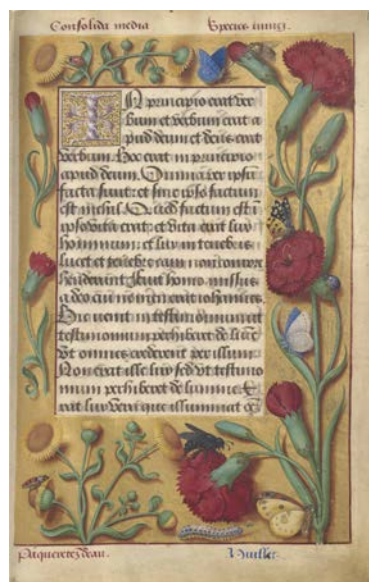 Consolida media
In principio erat ver
bum et verbum erat a
pud deum et deus erat
verbum. Hoc erat in principio
apud deum. Omnia per ipsū
facta sunt: et sine ipso factum
est nichil. Quod factum est ī
ipso vita erat: et vita erat lux
hominum: et lux in tenebris
lucet et tenebre eam non compre
henderunt. Fuit homo missus
a deo cui nomen erat iohannes.
Hic venit in testimonium ut
testimonium perhiberet de
vt omnes crederent per illum
Non erat ille lux sed vt testimo
nium perhiberet de lumine. E
rat lux vera que illuminat